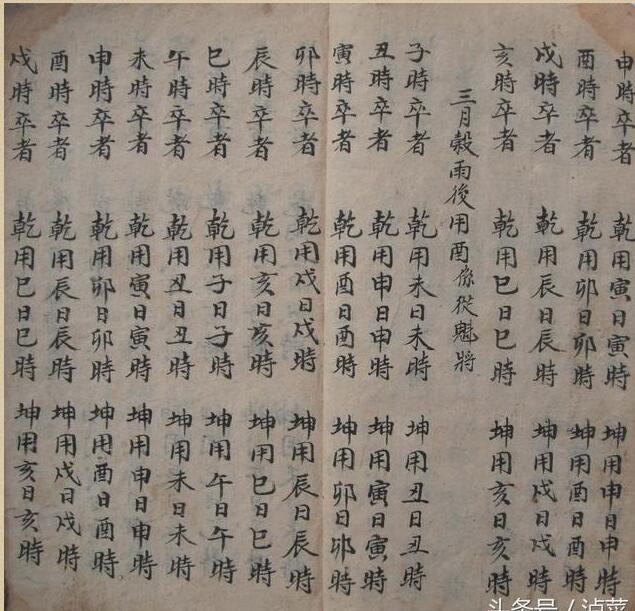 申時卒者 乾用寅日寅時 坤用申日申時
酉時卒者 乾用卯日卯時 坤用酉日酉時
戌時卒者 乾用辰日辰時 坤用戌日戌時
亥時卒者 乾用巳日巳時 坤用亥日亥時
三月穀雨後用酉係從魁將
子時卒者 乾用未日未時 坤用丑日丑時
丑時卒者 乾用申日申時 坤用寅日寅時
寅時卒者 乾用酉日酉時 坤用卯日卯時
卯時卒者 乾用戌日戌時 坤用辰日辰時
辰時卒者 乾用亥日亥時 坤用巳日巳時
巳時卒者 乾用子日子時 坤用午日午時
午時卒者 乾用丑日丑時 坤用未日未時
未時卒者 乾用寅日寅時 坤用申日申時
申時卒者 乾用卯日卯時 坤用酉日酉時
酉時卒者 乾用辰日辰時 坤用戌日戌時
戌時卒者 乾用巳日巳時 坤用亥日亥時
头条号 /